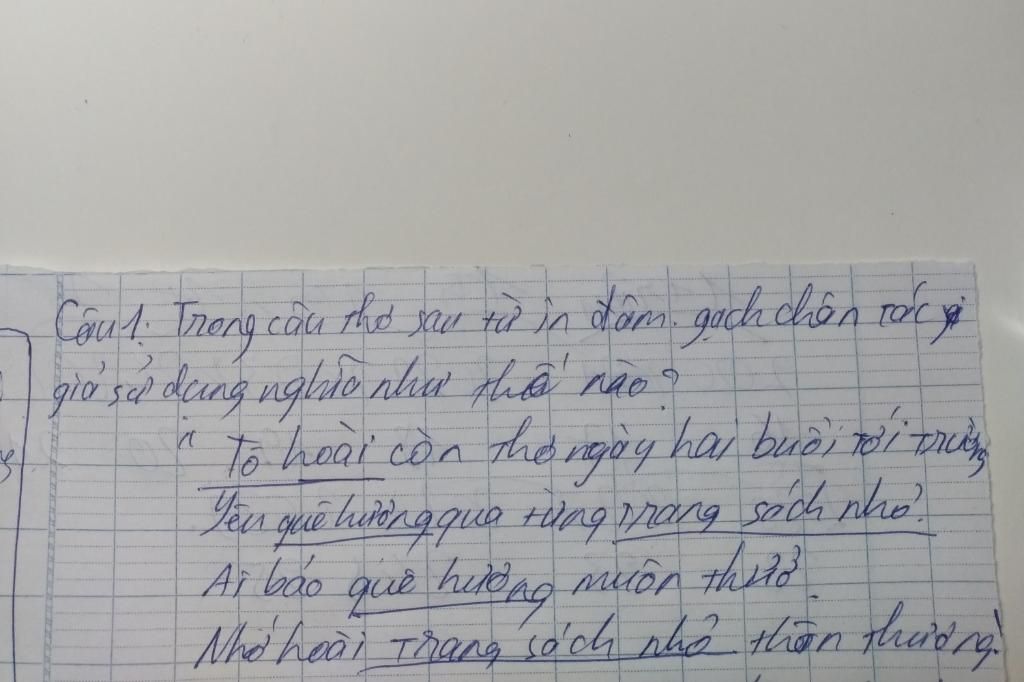 Câu 1. Trong câu thơ sau từ in đâm. gạch chân tác
giả sử dụng nghĩa như thế nào?
" Tô hoài còn thơ ngày hai buổi tới trường
Yêu quê hương qua từng trang sách nhỏ.
Ai bảo quê hương muôn thưở
Nhớ hoài trang sách nhỏ thân thương